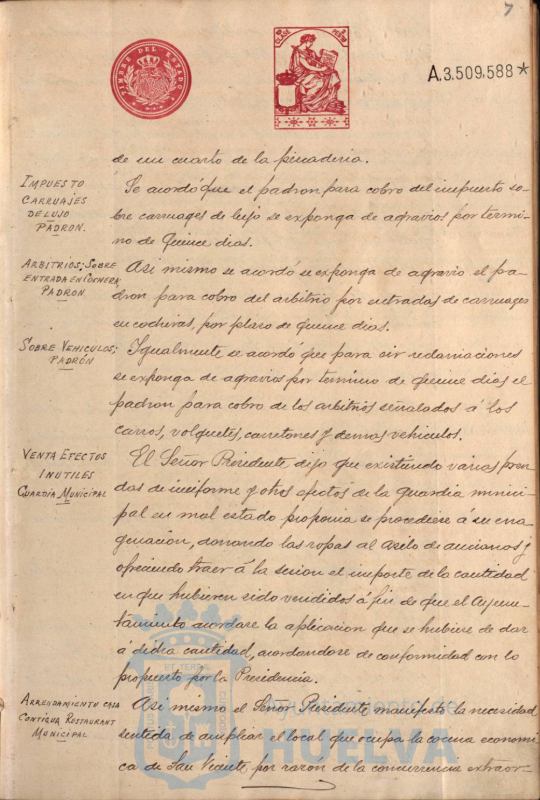 7
TIMBRE DEL ESTADO
CLASE
A.3.509.588*
de un cuarto de la picaderia.
IMPUESTO
CARRUAJES
DE LUJO
PADRON.
Se acordó que el padron para cobro del impuesto so-
bre carruages de lujo se exponga de agravios por termi-
no de quince dias.
ARBITRIOS; SOBRE
ENTRADA EN COCHERA
PADRON
Asi mismo se acordó se exponga de agravio el pa-
dron para cobro del arbitrio por entradas de carruages
en cocheras, por plazo de quince dias.
SOBRE VEHICULOS;
PADRÓN
Igualmente se acordó que para oir reclamaciones
se exponga de agravios por termino de quince dias el
padron para cobro de los arbitrios señalados á los
carros, volquetes, carretones y demas vehiculos.
VENTA EFECTOS
INUTILES
GUARDIA MUNICIPAL
El Señor Presidente dijo que existiendo varias pren-
das de uniforme y otros efectos de la guardia munici-
pal en mal estado proponia se procediese á su ena-
genacion, donando las ropas al Asilo de ancianos y
ofreciendo traer á la sesion el importe de la cantidad
en que hubieren sido vendidos á fin de que el Ayun-
tamiento acordare la aplicacion que se hubiere de dar
á dicha cantidad, acordandose de conformidad con lo
propuesto por la Presidencia.
ARRENDAMIENTO CASA
CONTIGUA RESTAURANT
MUNICIPAL
Asi mismo el Señor Presidente manifestó la necesidad
sentida de ampliar el local que ocupa la cocina economi-
ca de San Vicente por razón de la concurrencia extraor-
Ayuntamiento de
HUELVA